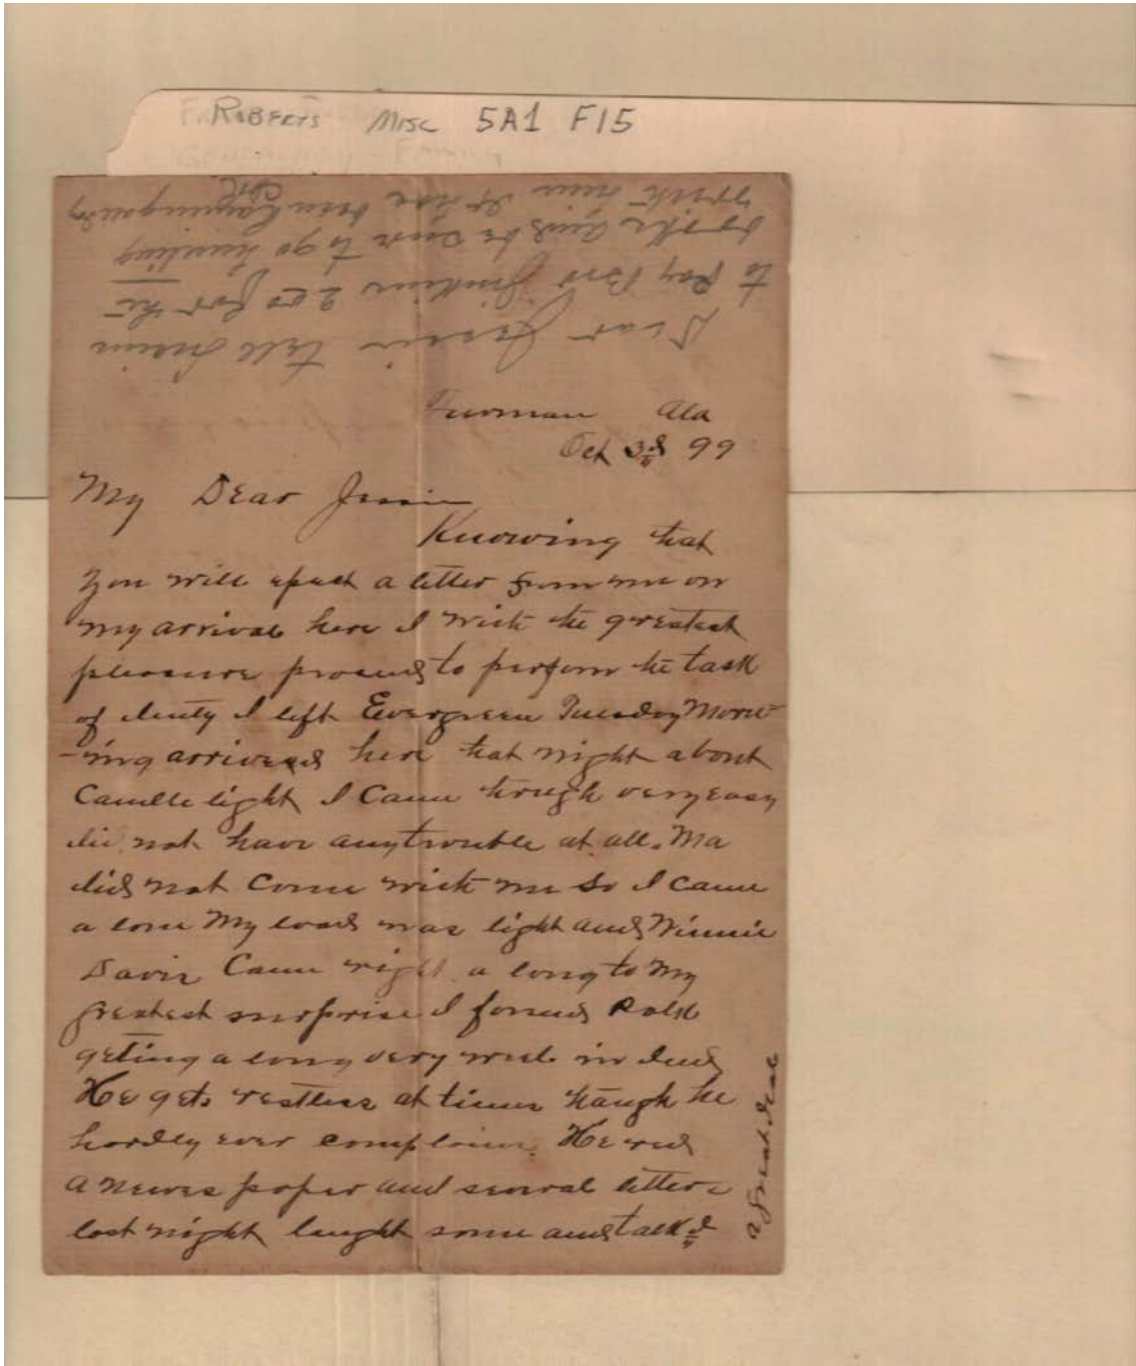 ROBERTS MISC 5A1 F15
Dear Jessie tell
to Pay Bob 2 00 for the
and be sure to go hunting
with him it has been
Furman Ala
Oct 3rd 99
My Dear Jessie
Knowing that
you will expect a letter from me on
my arrival here I with the greatest
pleasure proceed to perform the task
of duty I left Evergreen Tuesday Morn
-ing arrived here that night about
Candle light I Came through very easy
did not have any trouble at all. Ma
did not Come with me So I came
a lone My load was light and Winnie
Davis Came right a long to My
greatest surprise I found Polk
geting a long very well in deed
He gets restless at times though he
hardly ever complains. He red
a newes paper and several letters
last night laught some and talkd
a great deal